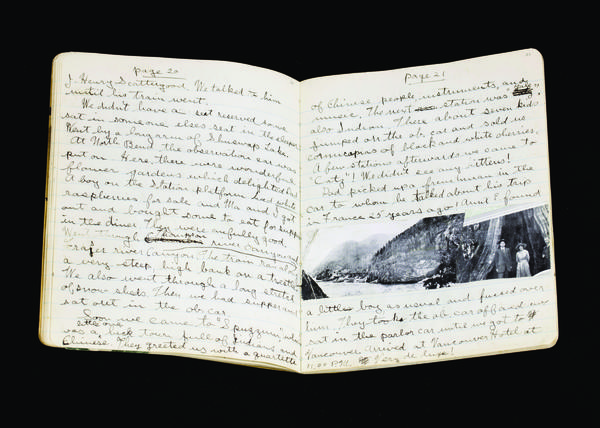 page 20
J. Henry Scattergood. We talked to him
until his train went.
We didn't have a seat reserved so we
sat in someone elses seat in the sleeper.
Went by a long arm of Shuswap Lake.
At North Bend the observation car was
put on. Here there were wonderful
flower gardens which delighted her.
A boy on the station platform had white
raspberries for sale and Ma and I got
out and bought some to eat for supper
in the diner. They were awfully good.
Went through river Canyon and
Frazer river Canyon. The train ran along
a very steep, high bank on a
We also went through a long stretch
of snow sheds. Then we had supper and
sat out in the ob. car
Soon we came to "Spuzzum", which
was a little tour full of Indians and
Chinese. They greeted us with a quartette
page 21
of Chinese people, instruments, and
music. The next station was "Yale",
also Indian. There about seven kids
jumped on the ob. car and sold us
cornucopias of black and white cherries.
A few stations afterwards we came to
"Katz"! We didn't see any kittens!
Dad picked up a frenchman in the
car to whom he talked about his trip
in France 25 years ago. And E found
a little boy as usual and fussed over
him. They took the ob. car off and we
sat in the parlor car until we got to
Vancouver. Arrived at Vancouver Hotel at
11:00 P.M. Very de luxe!